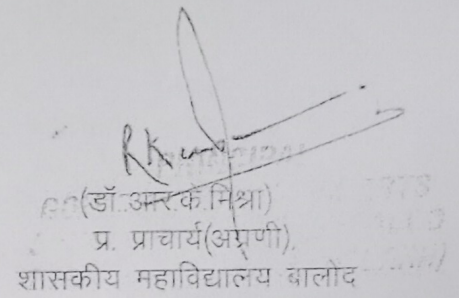 (डॉ.आर.के.मिश्रा)
प्र. प्राचार्य(अग्रणी).
शासकीय महाविद्यालय बालोद